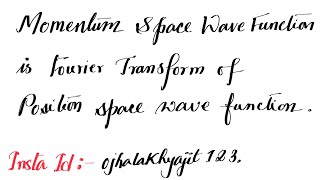 Momentum Space Wave Function
is Fourier Transform of
Position space wave function.
Insta Id:- ojhalakhyajit 123.